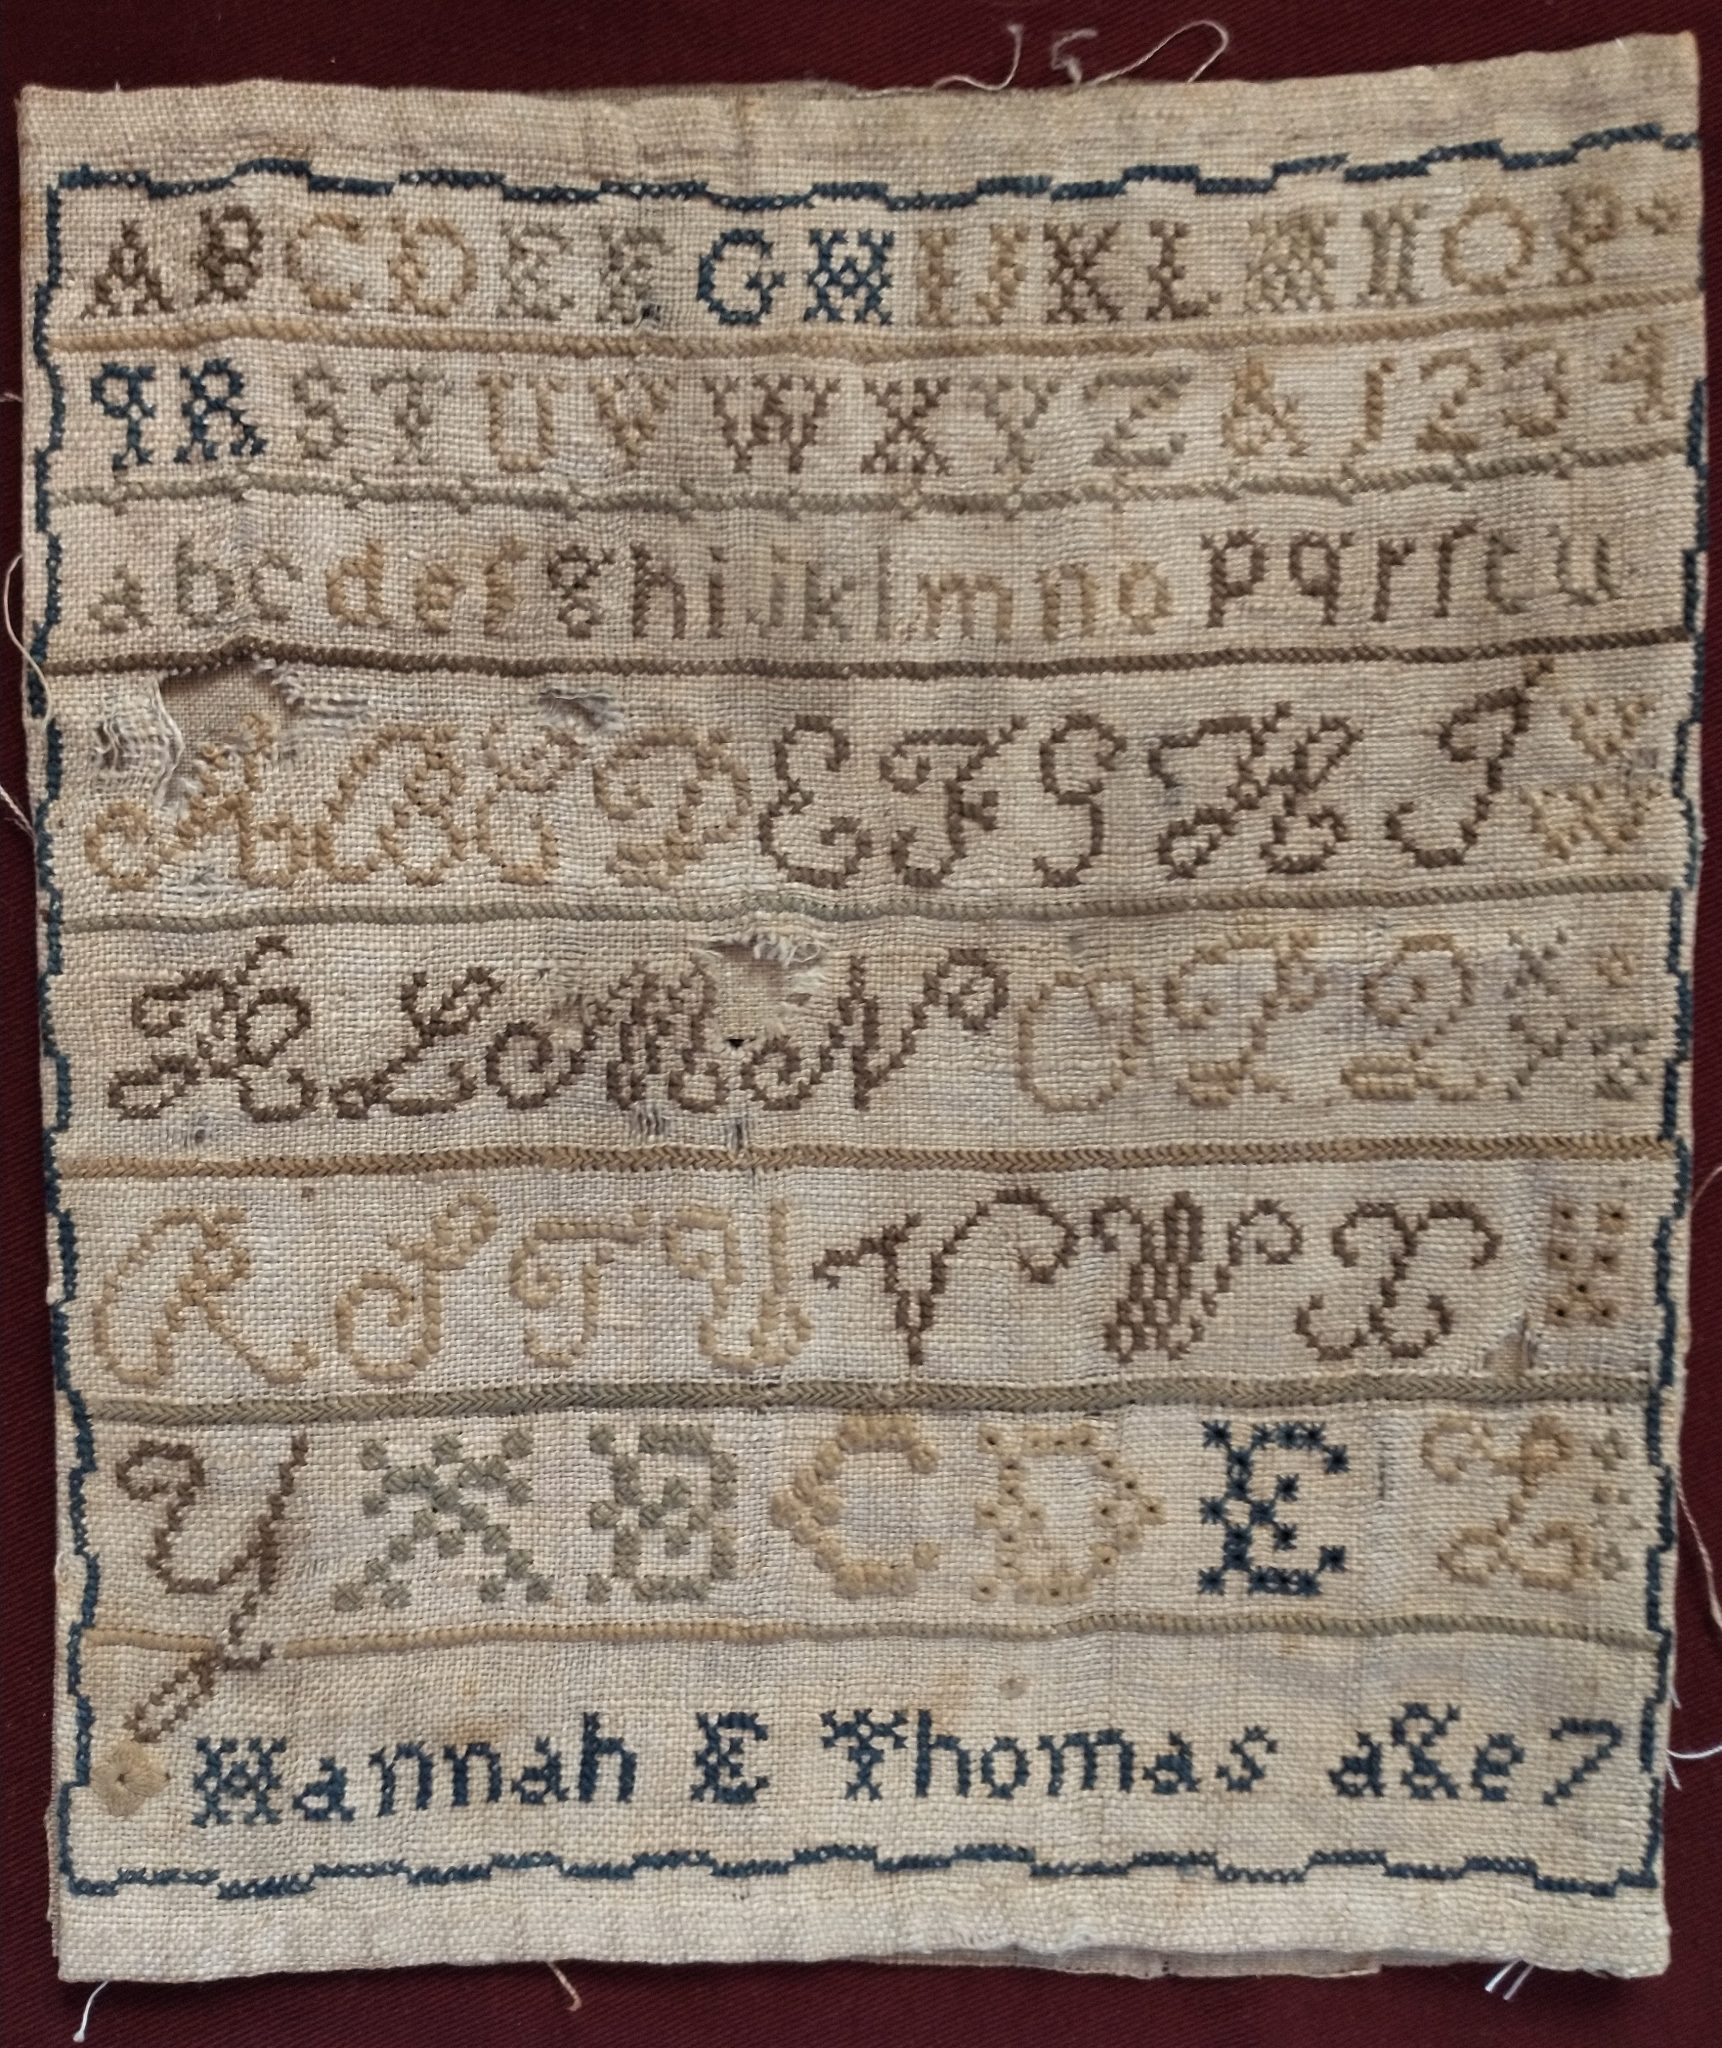 ABCDEFGHIJKLMNOP
qRSTUVWXYZ&1234
abcdefghijklmnopqrſtu
ABCDEFGHJ
KLMNOPQ
RSTUVWX
YABCDEZ
Hannah E Thomas age7